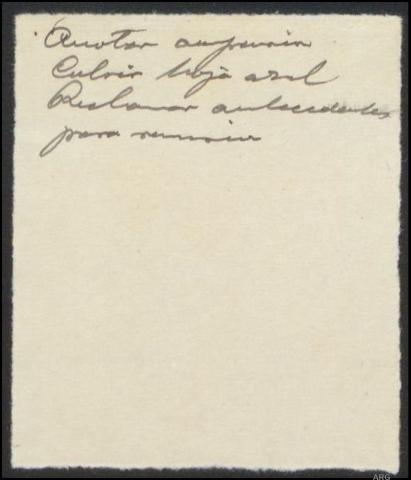 Anotar
Cubrir hoja azul
Reclamar antecedentes
para reunir
ARG